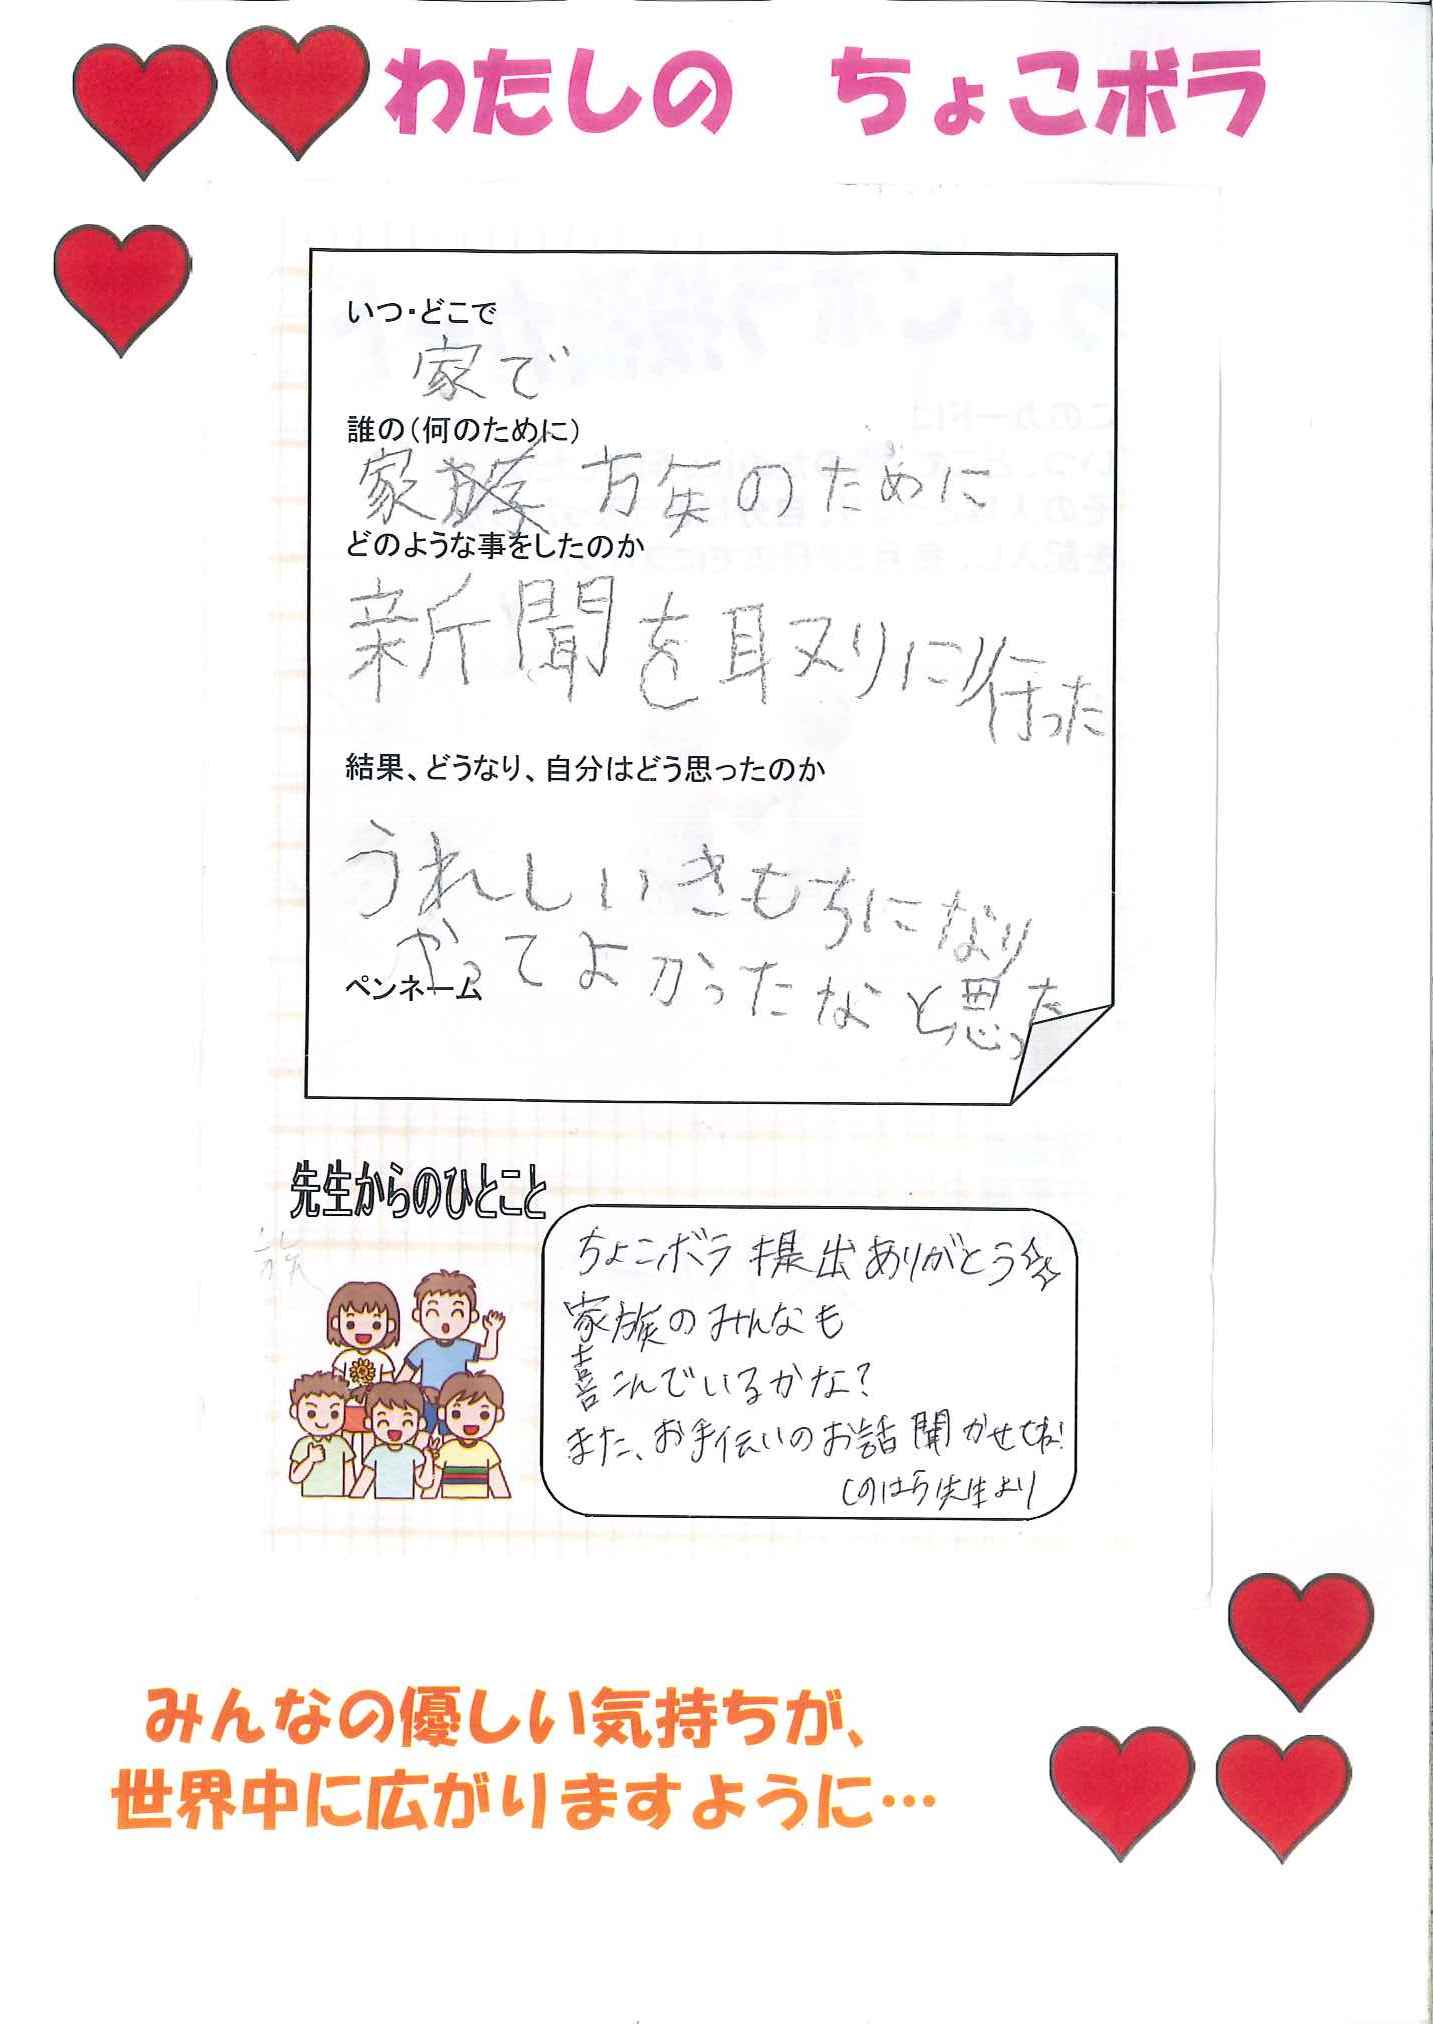 わたしの ちょこボラ
いつ・どこで
家で
誰の(何のために)
家族のために
どのような事をしたのか
新聞を取りに行った
結果、どうなり、自分はどう思ったのか
うれしいきもちになり
やってよかったなと思った
ペンネーム
先生からのひとこと
ちょこボラ提出ありがとう☆
家族のみんなも
喜こんでいるかな?
また、お手伝いのお話聞かせてね!
しのはら先生より
みんなの優しい気持ちが、
世界中に広がりますように…